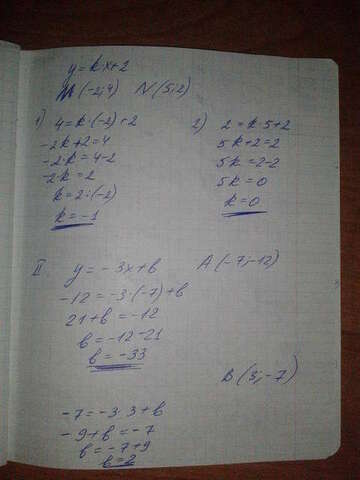 y = kx + 2
M (-2;4) N (5;2)
1) 4 = k·(-2)+2
-2k+2=4
-2k = 4-2
-2k = 2
k = 2:(-2)
k = -1
2) 2 = k·5+2
5k+2=2
5k = 2-2
5k = 0
k = 0
II. y = -3x+b A (-7;-12)
-12 = -3·(-7)+b
21+b = -12
b = -12-21
b = -33
B (3;-7)
-7 = -3·3+b
-9+b = -7
b = -7+9
b = 2